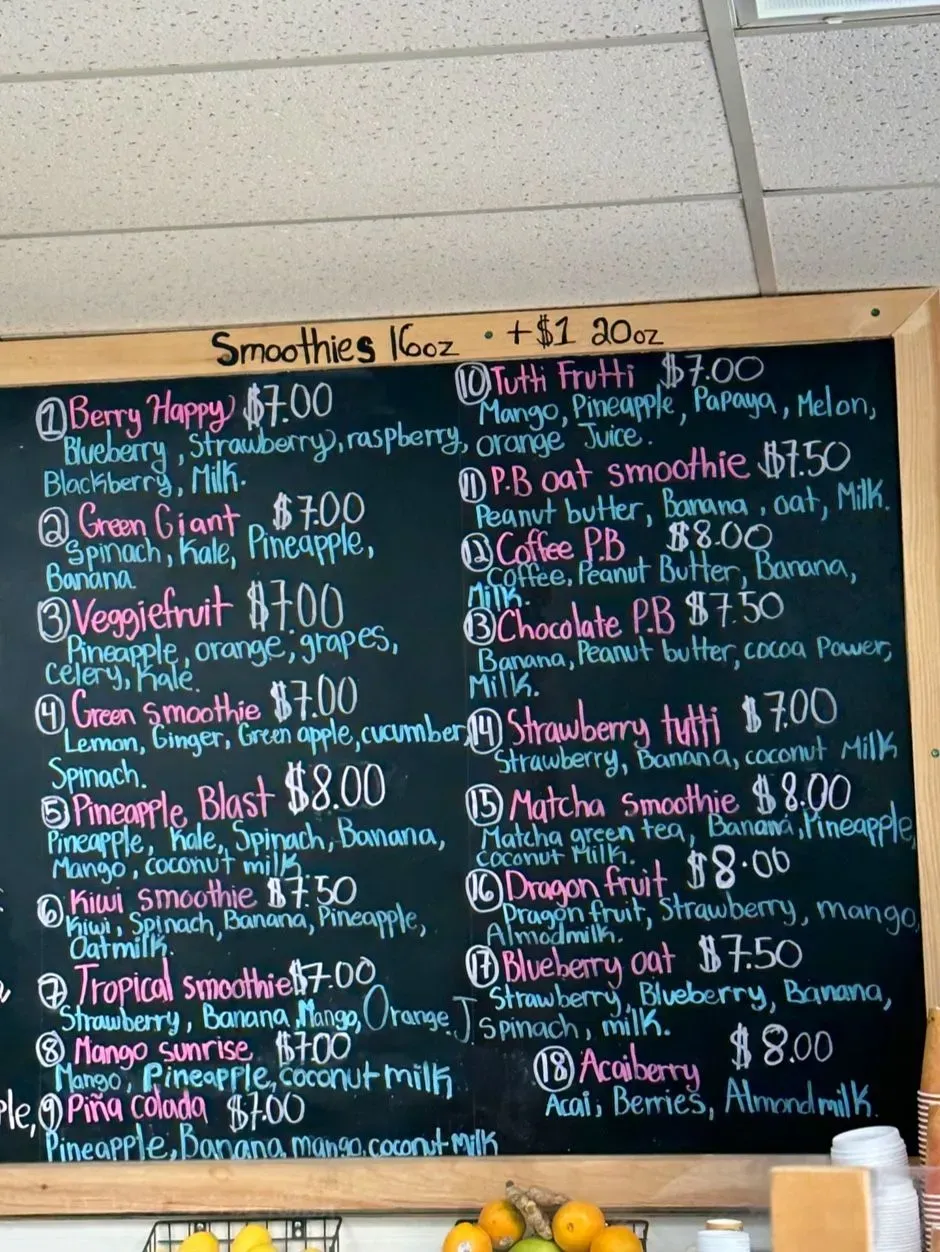 Smoothies 16oz · +$1 20oz
① Berry Happy $7.00
Blueberry, Strawberry, raspberry,
Blackberry, Milk.
② Green Giant $7.00
Spinach, Kale, Pineapple,
Banana.
③ Veggiefruit $7.00
Pineapple, orange, grapes,
Celery, Kale.
④ Green smoothie $7.00
Lemon, Ginger, Green apple, cucumber,
Spinach.
⑤ Pineapple Blast $8.00
Pineapple, Kale, Spinach, Banana,
Mango, coconut milk.
⑥ Kiwi smoothie $7.50
Kiwi, Spinach, Banana, Pineapple,
Oatmilk.
⑦ Tropical smoothie $7.00
Strawberry, Banana, Mango, Orange J
⑧ Mango sunrise $7.00
Mango, Pineapple, coconut milk
⑨ Piña colada $7.00
Pineapple, Banana, mango, coconut Milk
⑩ Tutti Frutti $7.00
Mango, Pineapple, Papaya, Melon,
orange Juice.
⑪ P.B oat smoothie $7.50
Peanut butter, Banana, oat, Milk.
⑫ Coffee P.B $8.00
Coffee, Peanut Butter, Banana,
Milk.
⑬ Chocolate P.B $7.50
Banana, Peanut butter, cocoa Power,
Milk.
⑭ Strawberry tutti $7.00
Strawberry, Banana, coconut Milk
⑮ Matcha smoothie $8.00
Matcha green tea, Banana, Pineapple,
Coconut Milk.
⑯ Dragon fruit $8.00
Dragon fruit, Strawberry, mango,
Almodmilk.
⑰ Blueberry oat $7.50
Strawberry, Blueberry, Banana,
Spinach, milk.
⑱ Acaiberry $8.00
Acai, Berries, Almondmilk.